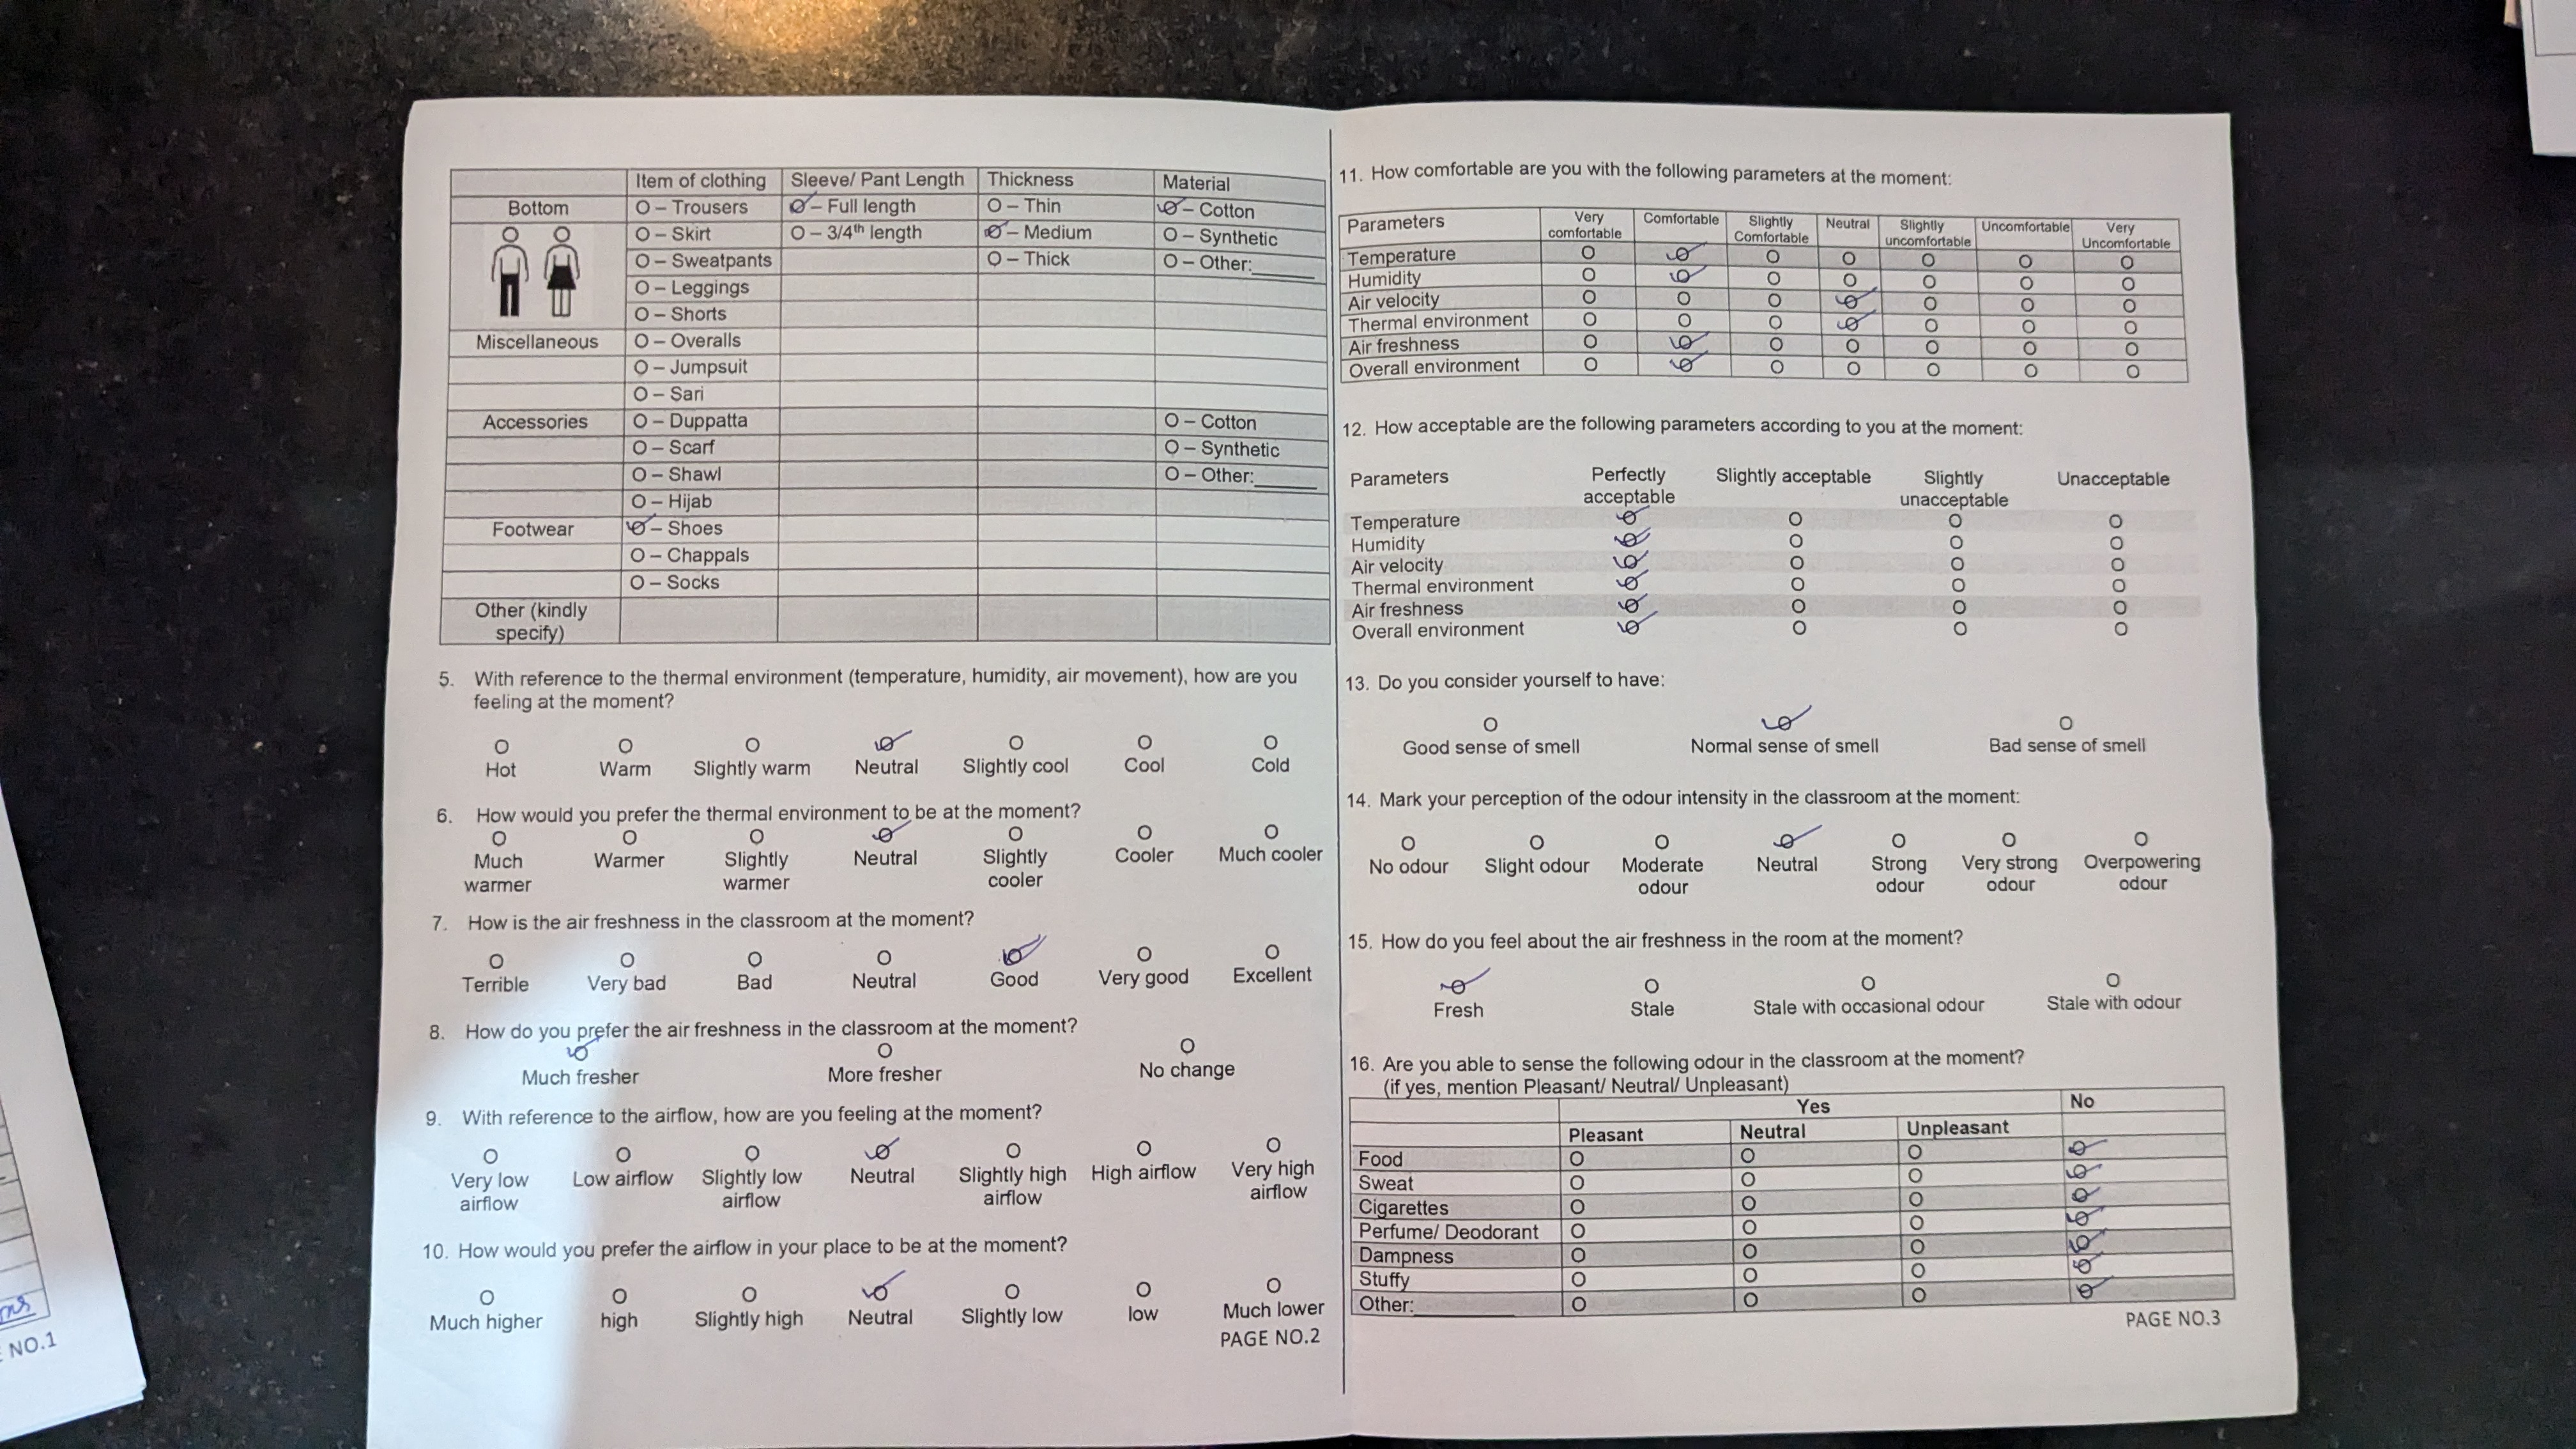 Item of clothing Sleeve/ Pant Length Thickness Material
Bottom O – Trousers O – Full length O – Thin O – Cotton
O – Skirt O – 3/4th length O – Medium O – Synthetic
O – Sweatpants O – Thick O – Other:______
O – Leggings
O – Shorts
Miscellaneous O – Overalls
O – Jumpsuit
O – Sari
Accessories O – Duppatta O – Cotton
O – Scarf O – Synthetic
O – Shawl O – Other:______
O – Hijab
Footwear O – Shoes
O – Chappals
O – Socks
Other (kindly
specify)
5. With reference to the thermal environment (temperature, humidity, air movement), how are you
feeling at the moment?
Hot Warm Slightly warm Neutral Slightly cool Cool Cold
6. How would you prefer the thermal environment to be at the moment?
Much Warmer Slightly Neutral Slightly Cooler Much cooler
warmer warmer cooler
7. How is the air freshness in the classroom at the moment?
Terrible Very bad Bad Neutral Good Very good Excellent
8. How do you prefer the air freshness in the classroom at the moment?
Much fresher More fresher No change
9. With reference to the airflow, how are you feeling at the moment?
Very low Low airflow Slightly low Neutral Slightly high High airflow Very high
airflow airflow airflow airflow
10. How would you prefer the airflow in your place to be at the moment?
Much higher high Slightly high Neutral Slightly low low Much lower
PAGE NO.2
11. How comfortable are you with the following parameters at the moment:
Parameters Very Comfortable Slightly Neutral Slightly Uncomfortable Very
comfortable Comfortable uncomfortable Uncomfortable
Temperature
Humidity
Air velocity
Thermal environment
Air freshness
Overall environment
12. How acceptable are the following parameters according to you at the moment:
Parameters Perfectly Slightly acceptable Slightly Unacceptable
acceptable unacceptable
Temperature
Humidity
Air velocity
Thermal environment
Air freshness
Overall environment
13. Do you consider yourself to have:
Good sense of smell Normal sense of smell Bad sense of smell
14. Mark your perception of the odour intensity in the classroom at the moment:
No odour Slight odour Moderate Neutral Strong Very strong Overpowering
odour odour odour odour
15. How do you feel about the air freshness in the room at the moment?
Fresh Stale Stale with occasional odour Stale with odour
16. Are you able to sense the following odour in the classroom at the moment?
(if yes, mention Pleasant/ Neutral/ Unpleasant)
Yes No
Pleasant Neutral Unpleasant
Food
Sweat
Cigarettes
Perfume/ Deodorant
Dampness
Stuffy
Other:
PAGE NO.3
NO.1